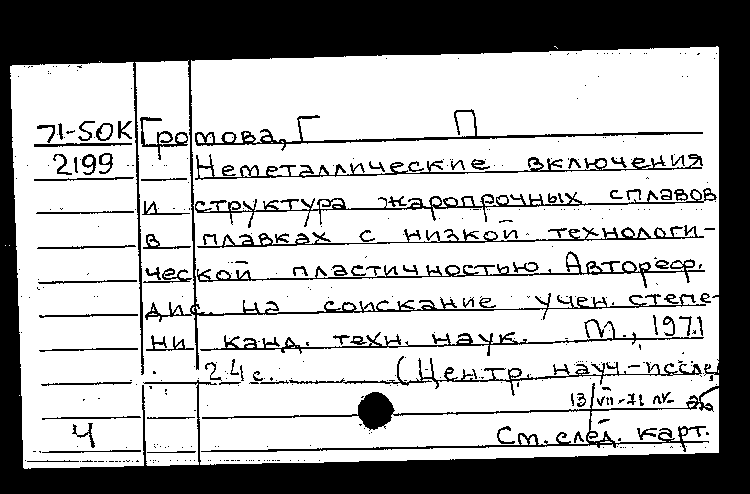 71-50К Громова, Г П
2199 Неметаллические включения
и структура жаропрочных сплавов
в плавках с низкой технологи-
ческой пластичностью. Автореф.
дис. на соискание учен. степе-
ни канд. техн. наук. М., 1971
24 с. (Центр. науч.-исслед
13/VII-71 ЛК
Ч См. след. карт.